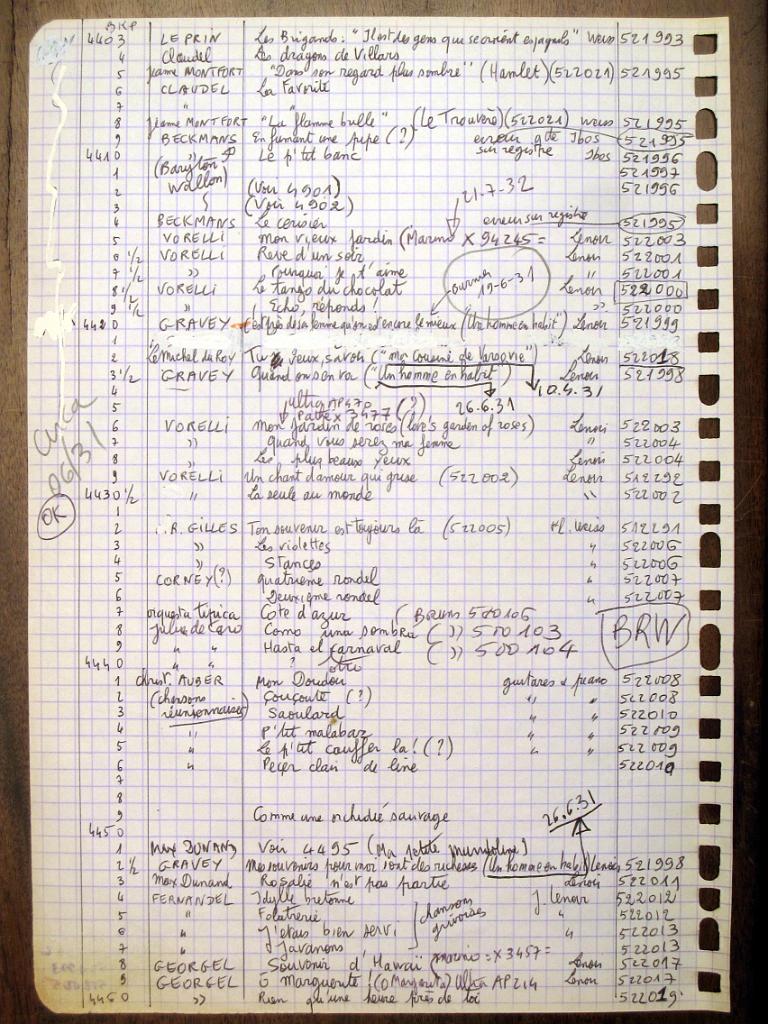 BKP
4403 LE PRIN Les Brigands : "Il est des gens que se disent espagnols" Weiss 521993
4 Claudel Les dragons de Villars
5 Jeanne MONTFORT "Dans son regard plus sombre" (Hamlet) (522021) 521995
6 CLAUDEL La Favorite
7 "
8 Jeanne MONTFORT "La flamme brille" (Le Trouvère) (522021) Weiss 521995
9 BECKMANS En fumant une pipe (?) erreur qte Ibos 521995
4410 " Le p'tit banc sur registre Ibos 521996
1 (Baryton Wallon) 521997
2 (Voir 4901) 521996
3 (Voir 4902) 21-7-32
4 BECKMANS Le cerisier erreur sur registre 521995
5 VORELLI Mon vieux jardin (Marino X 94245 = Lenoir 522003
6 1/2 VORELLI Reve d'un soir Lenoir 522001
7 1/2 " Pourquoi je t'aime " 522001
8 1/2 VORELLI Le tango du chocolat 19-6-31 Lenoir 522000
9 1/2 Echo, réponds ! " 522000
4420 GRAVEY C'est près de sa femme qu'on est encore le mieux (Un homme en habit") Lenoir 521999
1
2 Le Michel du Roy Tu veux savoir ("ma cousine de Varsovie") Lenoir 522018
3 1/2 GRAVEY Quand on s'en va ("Un homme en habit") Lenoir 521998
4 10.4.31
5 ultra AP470 (?) 26.6.31
Pathé X 3477
6 VORELLI Mon jardin de roses (love's garden of roses) Lenoir 522003
7 " Quand vous serez ma femme " 522004
8 Les plus beaux yeux Lenoir 522004
9 VORELLI Un chant d'amour qui grise (522002) Lenoir 512292
4430 1/2 " La seule au monde " 522002
Circa 06/31
OK
1
2 R. GILLES Ton souvenir est toujours là (522005) H. Weiss 512291
3 " Les violettes " 522006
4 " Stances " 522006
5 CORNEY (?) Quatrième rondel " 522007
6 Deuxième rondel " 522007
7 orquesta tipica Cote d'azur (Bruns 500106
8 Julio de Caro Como una sombra ( " ) 500103 BRW
9 " " Hasta el otro carnaval ( " ) 500104
4440 " " ?
1 christ. AUBER Mon Doudou guitares & piano 522008
2 (chansons Coucoute (?) " " 522008
3 réunionnaises) Saoulard " " 522010
4 " P'tit malabar " " 522009
5 " Le p'tit cauffer la ! (?) " " 522009
6 " Peçer clair de line 522010
7
8
9 Comme une orchidée sauvage 26.6.31
4450
1 Max DUNAND Voir 4495 (Ma petite
2 1/2 GRAVEY Mes souvenirs pour moi sont des richesses (Un homme en habit) Lenoir 521998
3 Max Dunand Rosalie n'est pas partie Lenoir 522011
4 FERNANDEL Idylle bretonne J. Lenoir 522012
5 " Folatrerie chansons grivoises " 522012
6 " J'etais bien servi " 522013
7 " Javanons 522013
8 GEORGEL Souvenir d'Hawaï (Marino = X3457 = Lenoir 522017
9 GEORGEL O Marguerite ! (O Margarita) Ultra AP214 Lenoir 522017
4460 " Rien qu'une heure près de toi 522019